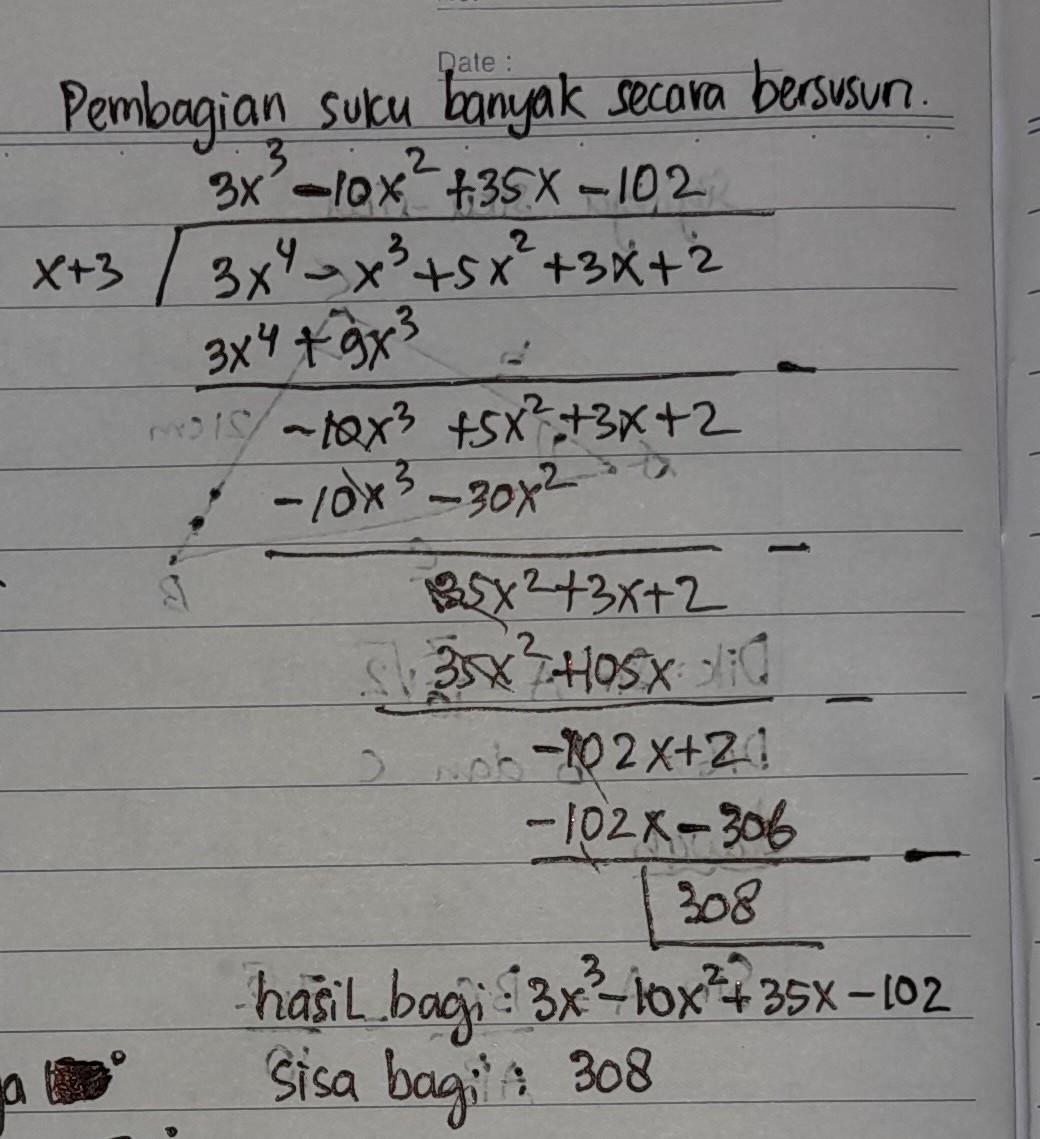 Date :
Pembagian suku banyak secara bersusun.
3x³ - 10x² + 35x - 102
x+3 / 3x⁴ - x³ + 5x² + 3x + 2
3x⁴ + 9x³
-
-10x³ + 5x² + 3x + 2
-10x³ - 30x²
-
35x² + 3x + 2
35x² + 105x
-
-102x + 2
-102x - 306
-
308
hasil bagi : 3x³ - 10x² + 35x - 102
Sisa bagi : 308